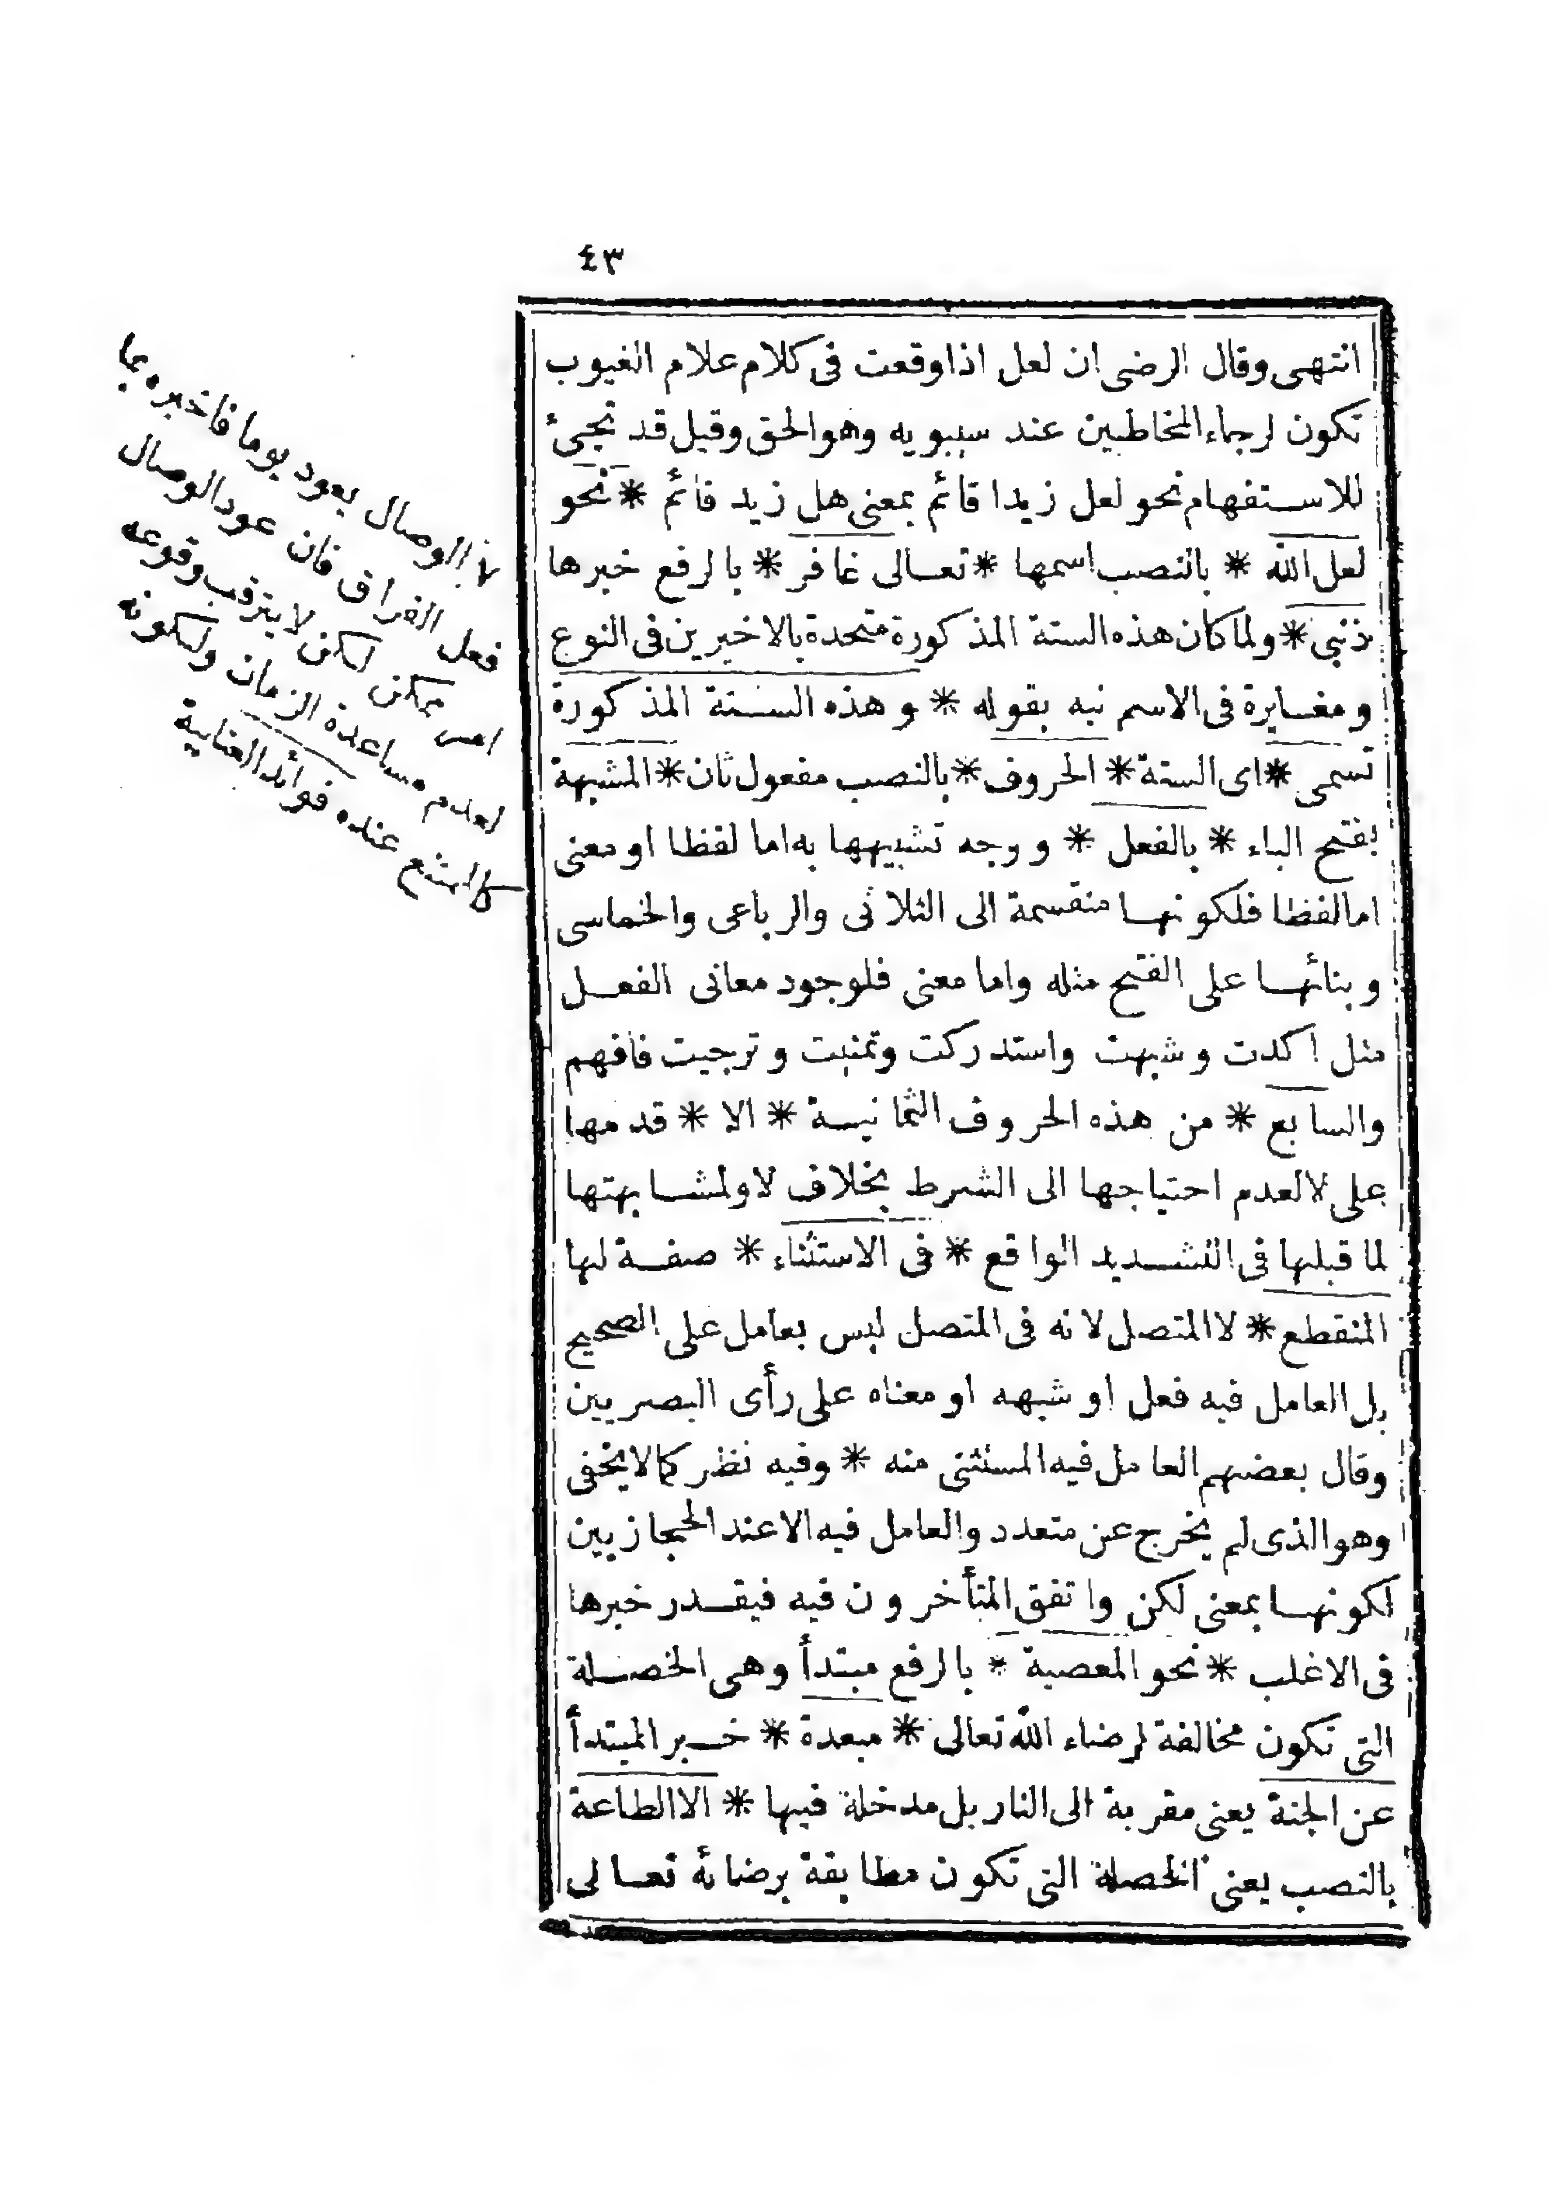 ٤٣
انتهى وقال الرضى ان لعل اذا وقعت فى كلام علام الغيوب
تكون لرجاء المخاطبين عند سيبويه وهو الحق وقيل قد تجئ
للاستفهام نحو لعل زيدا قائم بمعنى هل زيد قائم * نحو
لعل الله * بالنصب اسمها * تعالى غافر * بالرفع خبرها
ذنبى * ولما كان هذه الستة المذكورة متحدة بالاخيرين فى النوع
ومغايرة فى الاسم نبه بقوله * وهذه الستة المذكورة
تسمى * اى الستة * الحروف * بالنصب مفعول ثان * المشبهة
بفتح الباء * بالفعل * ووجه تشبيهها به اما لفظا او معنى
اما لفظا فلكونها منقسمة الى الثلاثى والرباعى والخماسى
وبنائها على الفتح مثله واما معنى فلوجود معانى الفعل
مثل اكدت وشبهت واستدركت وتمنيت وترجيت فافهم
والسابع * من هذه الحروف الثمانية * الا * قدمها
على لا لعدم احتياجها الى الشرط بخلاف لا ولمشابهتها
لما قبلها فى التشديد الواقع * فى الاستثناء * صفة لها
المنقطع * لا المتصل لانه فى المتصل ليس بعامل على الصحيح
بل العامل فيه فعل او شبهه او معناه على رأى البصريين
وقال بعضهم العامل فيه المستثنى منه * وفيه نظر كما لا يخفى
وهو الذى لم يخرج عن متعدد والعامل فيه الا عند الحجازيين
لكونها بمعنى لكن واتفق المتأخرون فيه فيقدر خبرها
فى الاغلب * نحو المعصية * بالرفع مبتدأ وهى الخصلة
التى تكون مخالفة لرضاء الله تعالى * مبعدة * خبر المبتدأ
عن الجنة يعنى مقربة الى النار بل مدخلة فيها * الا الطاعة
بالنصب يعنى الخصلة التى تكون مطابقة برضائه تعالى
الوصال يعود يوما فاخبره بما
فعل الفراق فان عود الوصال
امر ممكن لكن لا يترقب وقوعه
لعدم مساعدة الزمان ولكونه
كالممتنع عنده فوائد الغنايية